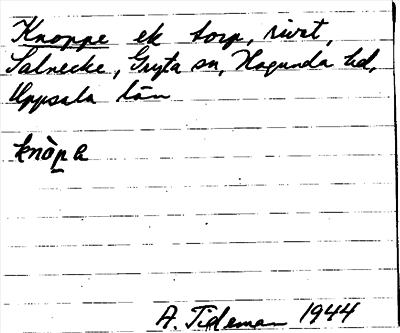 Knoppe ek torp, rivet,
Salnecke, Gryta sn, Hagunda hd,
Uppsala län
knòpa
A. Tideman 1944